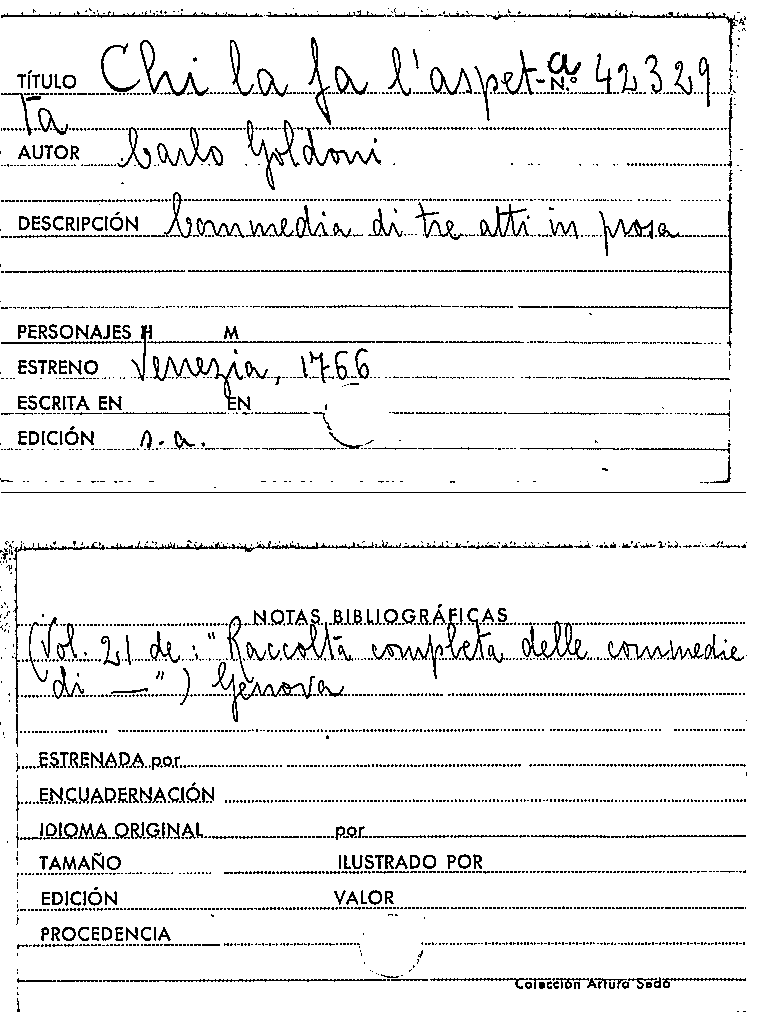 TÍTULO Chi la fa l'aspet- a N.º 42329
ta
AUTOR Carlo Goldoni
DESCRIPCIÓN Commedia di tre atti in prosa
PERSONAJES H M
ESTRENO Venezia, 1766
ESCRITA EN EN
EDICIÓN s.a.
NOTAS BIBLIOGRÁFICAS
(Vol. 21 de: "Raccolta completa delle commedie
di —") Genova
ESTRENADA por
ENCUADERNACIÓN
IDIOMA ORIGINAL por
TAMAÑO ILUSTRADO POR
EDICIÓN VALOR
PROCEDENCIA
Colección Arturo Sedó